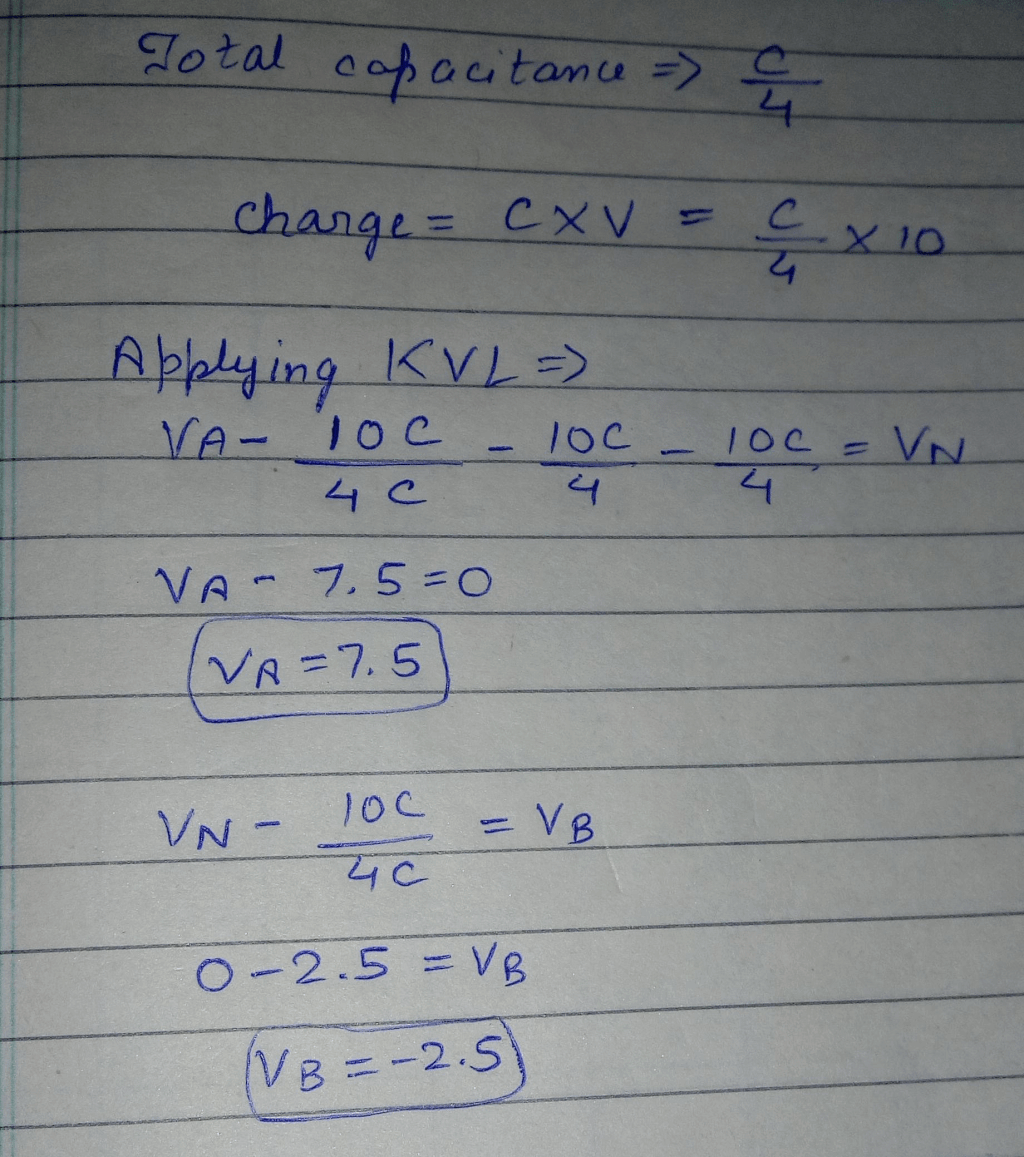 Total capacitance => C/4
charge = C X V = C/4 X 10
Applying KVL =>
VA - 10C/4C - 10C/4 - 10C/4 = VN
VA - 7.5 = 0
VA = 7.5
VN - 10C/4C = VB
0 - 2.5 = VB
VB = -2.5